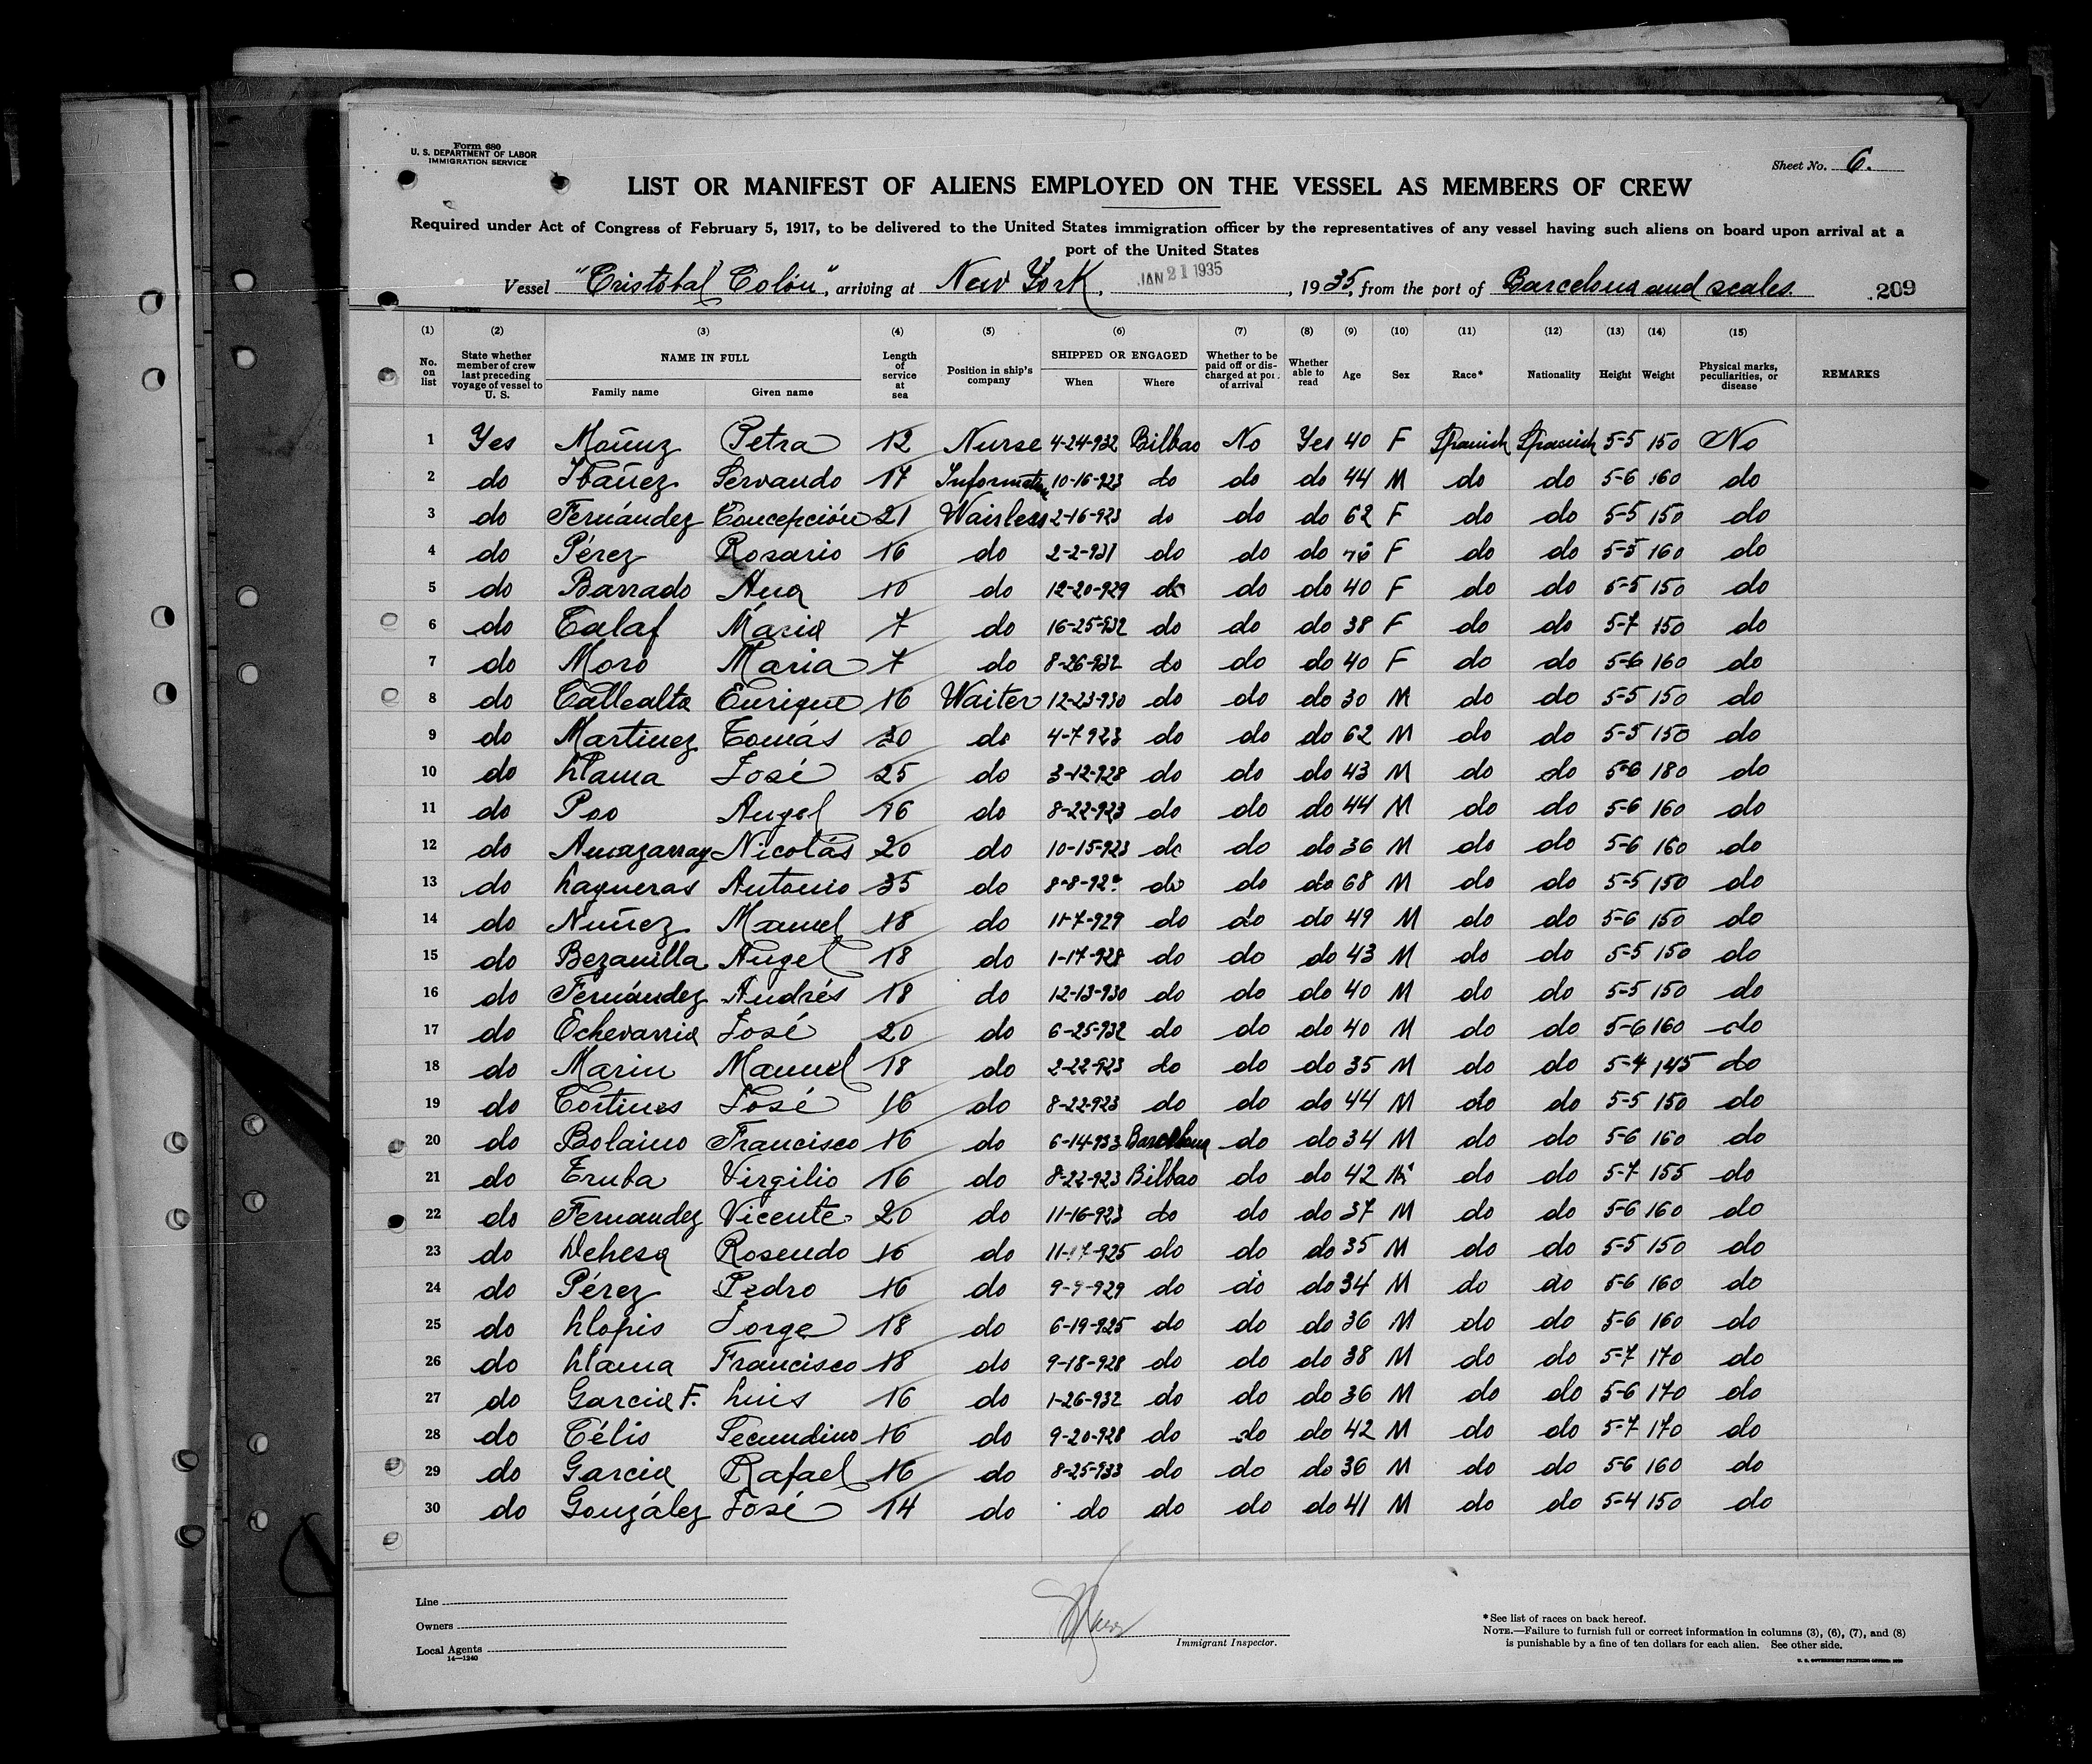 Form 680
U. S. DEPARTMENT OF LABOR
IMMIGRATION SERVICE
Sheet No. 6.
LIST OR MANIFEST OF ALIENS EMPLOYED ON THE VESSEL AS MEMBERS OF CREW
Required under Act of Congress of February 5, 1917, to be delivered to the United States immigration officer by the representatives of any vessel having such aliens on board upon arrival at a
port of the United States
Vessel "Cristóbal Colón", arriving at New York, JAN 21 1935, 1935, from the port of Barcelona and scales. 209
(1) (2) (3) (4) (5) (6) (7) (8) (9) (10) (11) (12) (13) (14) (15)
No. on list State whether member of crew last preceding voyage of vessel to U. S. NAME IN FULL Family name Given name Length of service at sea Position in ship's company SHIPPED OR ENGAGED When Where Whether to be paid off or discharged at port of arrival Whether able to read Age Sex Race* Nationality Height Weight Physical marks, peculiarities, or disease REMARKS
1 Yes Moünz Petra 12 Nurse 4-24-932 Bilbao No Yes 40 F Spanish Spanish 5-5 150 No
2 do Ibáñez Servando 17 10-16-923 do do do 44 M do do 5-6 160 do
3 do Fernández Concepción 21 Wairless 2-16-923 do do do 62 F do do 5-5 150 do
4 do Pérez Rosario 16 do 2-2-931 do do do F do do 5-5 160 do
5 do Barrado Ana 10 do 12-20-929 do do do 40 F do do 5-5 150 do
6 do Talaf Maria 7 do 16-25-932 do do do 38 F do do 5-7 150 do
7 do Moro Maria 7 do 8-26-932 do do do 40 F do do 5-6 160 do
8 do Callealta Enrique 16 Waiter 12-23-930 do do do 30 M do do 5-5 150 do
9 do Martinez Tomás 30 do 4-7-923 do do do 62 M do do 5-5 150 do
10 do Llama José 25 do 3-12-928 do do do 43 M do do 5-6 180 do
11 do Poo Angel 16 do 8-22-923 do do do 44 M do do 5-6 160 do
12 do Amazarray Nicolás 20 do 10-15-923 do do do 36 M do do 5-6 160 do
13 do Laqueras Antonio 35 do do do do 68 M do do 5-5 150 do
14 do Nuñez Manuel 18 do 11-7-929 do do do 49 M do do 5-6 150 do
15 do Bezanilla Angel 18 do 1-17-928 do do do 43 M do do 5-5 150 do
16 do Fernández Andrés 18 do 12-13-930 do do do 40 M do do 5-5 150 do
17 do Echevarria José 20 do 6-25-932 do do do 40 M do do 5-6 160 do
18 do Marin Manuel 18 do 2-22-923 do do do 35 M do do 5-4 145 do
19 do Cortines José 16 do 8-22-923 do do do 44 M do do 5-5 150 do
20 do Bolaino Francisco 16 do 6-14-933 Barcelona do do 34 M do do 5-6 160 do
21 do Truba Virgilio 16 do 8-22-923 Bilbao do do 42 M do do 5-7 155 do
22 do Fernandez Vicente 20 do 11-16-923 do do do 37 M do do 5-6 160 do
23 do Dehesa Rosendo 16 do 11-17-925 do do do 35 M do do 5-5 150 do
24 do Pérez Pedro 16 do 9-9-929 do do do 34 M do do 5-6 160 do
25 do Llopis Jorge 18 do 6-19-925 do do do 36 M do do 5-6 160 do
26 do Llama Francisco 18 do 9-18-928 do do do 38 M do do 5-7 170 do
27 do Garcia F. Luis 16 do 1-26-932 do do do 36 M do do 5-6 170 do
28 do Télis Secundino 16 do 9-20-928 do do do 42 M do do 5-7 170 do
29 do Garcia Rafael 16 do 8-25-933 do do do 36 M do do 5-6 160 do
30 do González José 14 do do do do do 41 M do do 5-4 150 do
Line
Owners
Local Agents
14—1240
Immigrant Inspector.
* See list of races on back hereof.
NOTE.—Failure to furnish full or correct information in columns (3), (6), (7), and (8)
is punishable by a fine of ten dollars for each alien. See other side.